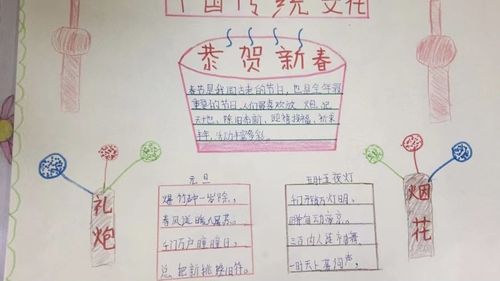 中国传统文化
恭贺新春
春节是我国古老的节日,也是全年最
重要的节日,人们最喜欢放 炮、祀
天地、除旧布新、迎禧接福、祈求
丰年,红火丰富多彩。
礼炮
元旦
爆竹声中一岁除,
春风送暖入屠苏。
千门万户曈曈日,
总把新桃换旧符。
正月十五夜灯
千门开锁万灯明,
正月中旬动帝京。
三百内人连袖舞,
一时天上著词声。
烟花